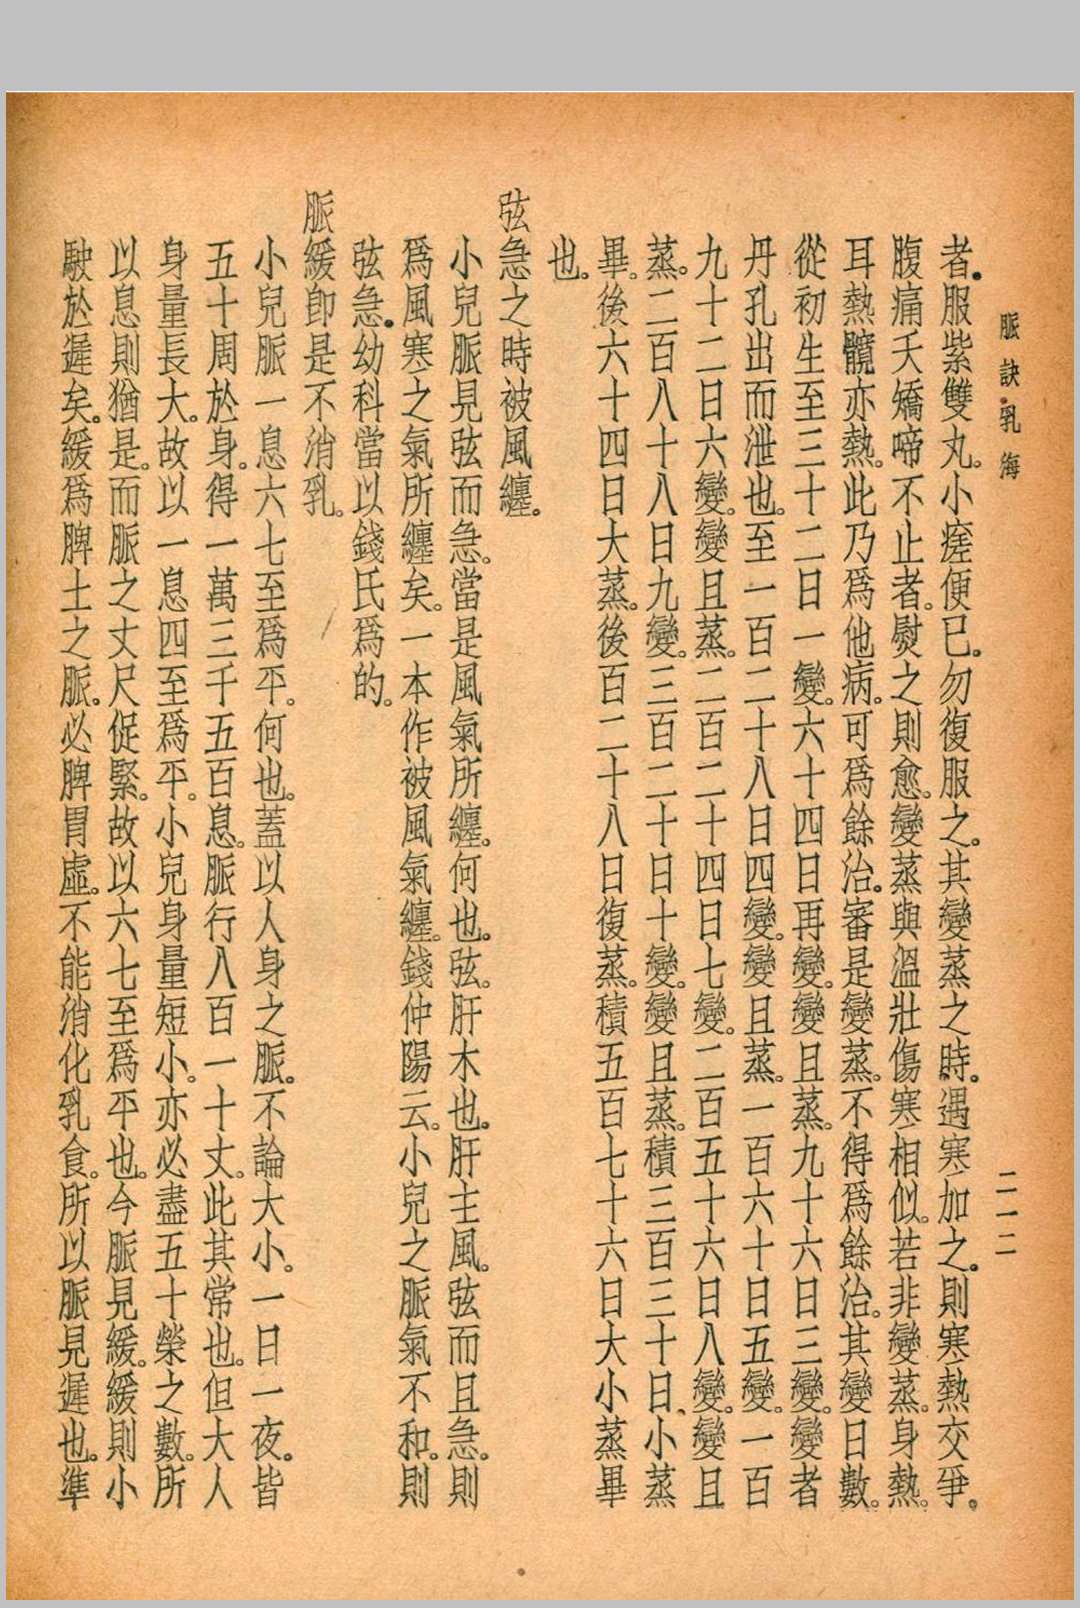 脈訣乳海
二一二
者。服紫雙丸。小瘥便已。勿復服之。其變蒸之時。遇寒加之。則寒熱交爭。
腹痛夭矯啼不止者。熨之則愈。變蒸與溫壯傷寒相似。若非變蒸。身熱。
耳熱髖亦熱。此乃爲他病。可爲餘治。審是變蒸。不得爲餘治。其變日數。
從初生至三十二日一變。六十四日再變。變且蒸。九十六日三變。變者
丹孔出而泄也。至一百二十八日四變。變且蒸。一百六十日五變。一百
九十二日六變。變且蒸。二百二十四日七變。二百五十六日八變。變且
蒸。二百八十八日九變。三百二十日十變。變且蒸。積三百三十日、小蒸
畢。後六十四日大蒸。後百二十八日復蒸。積五百七十六日大小蒸畢
也。
弦急之時被風纏。
小兒脈見弦而急。當是風氣所纏。何也。弦。肝木也。肝主風。弦而且急。則
爲風寒之氣所纏矣。一本作被風氣纏。錢仲陽云。小兒之脈氣不和。則
弦急。幼科當以錢氏爲的。
脈緩卽是不消乳。
小兒脈一息六七至爲平。何也。蓋以人身之脈。不論大小。一日一夜。皆
五十周於身。得一萬三千五百息。脈行八百一十丈。此其常也。但大人
身量長大。故以一息四至爲平。小兒身量短小。亦必盡五十榮之數。所
以息則猶是。而脈之丈尺促緊。故以六七至爲平也。今脈見緩。緩則小
駛於遲矣。緩爲脾土之脈。必脾胃虛。不能消化乳食。所以脈見遲也。準